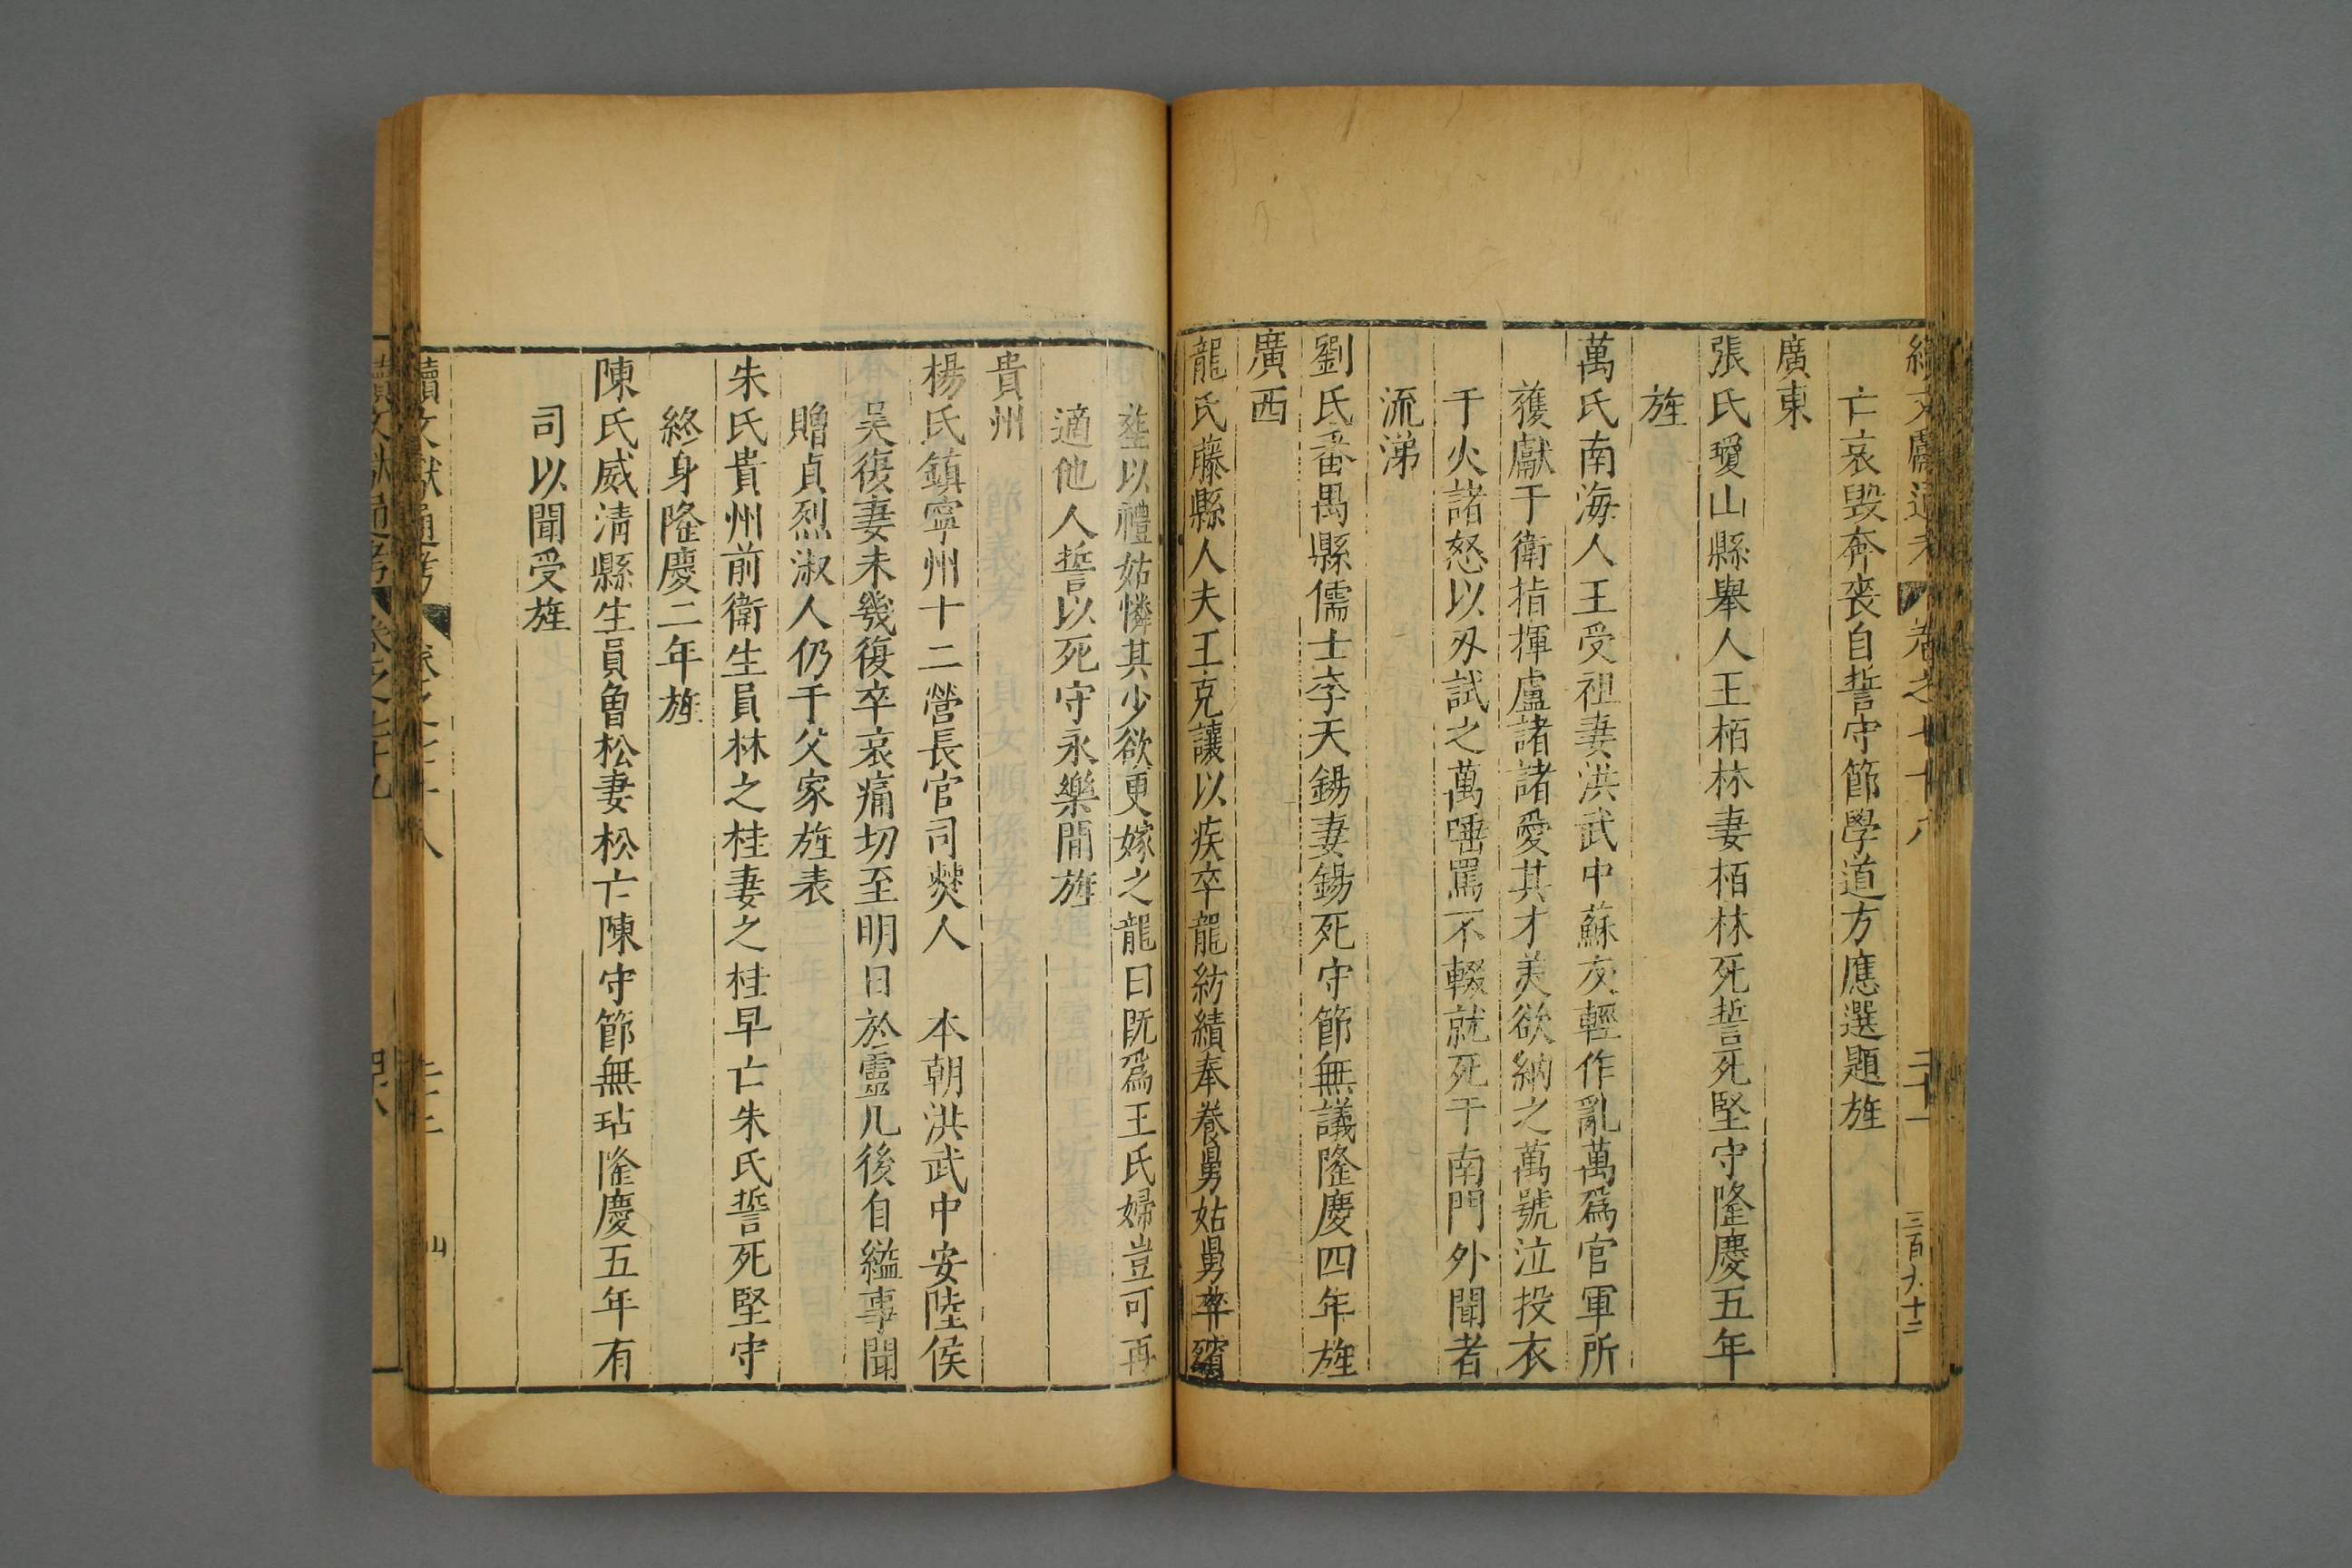 續文獻通考 卷之七十八 二十一 三百九十二
亡哀毀奔喪自誓守節學道方應選題旌
廣東
張氏瓊山縣舉人王栢林妻栢林死誓死堅守隆慶五年
旌
萬氏南海人王受祖妻洪武中蘇友輕作亂萬爲官軍所
獲獻于衛指揮盧諸諸愛其才美欲納之萬號泣投衣
于火諸怒以刄試之萬唾罵不輟就死于南門外聞者
流涕
劉氏番禺縣儒士李天錫妻錫死守節無議隆慶四年旌
廣西
龍氏藤縣人夫王克讓以疾卒龍紡績奉養舅姑舅卒殯
塟以禮姑憐其少欲更嫁之龍曰旣爲王氏婦豈可再
適他人誓以死守永樂間旌
貴州
楊氏鎮寧州十二營長官司僰人 本朝洪武中安陸侯
吳復妻未幾復卒哀痛切至明日於靈几後自縊事聞
贈貞烈淑人仍于父家旌表
朱氏貴州前衛生員林之桂妻之桂早亡朱氏誓死堅守
終身隆慶二年旌
陳氏威清縣生員魯松妻松亡陳守節無玷隆慶五年有
司以聞受旌
續文獻通考 卷之七十八
續文獻通考 卷之七十九